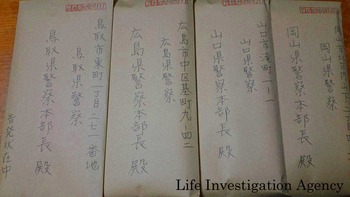 岡山県警察
岡山県警察本部長 殿
山口市滝町一ー一
山口県警察
山口県警察本部長 殿
広島市中区基町九ー四二
広島県警察
広島県警察本部長 殿
鳥取市東町一丁目二七一番地
鳥取県警察
鳥取県警察本部長 殿
告発状在中
Life Investigation Agency